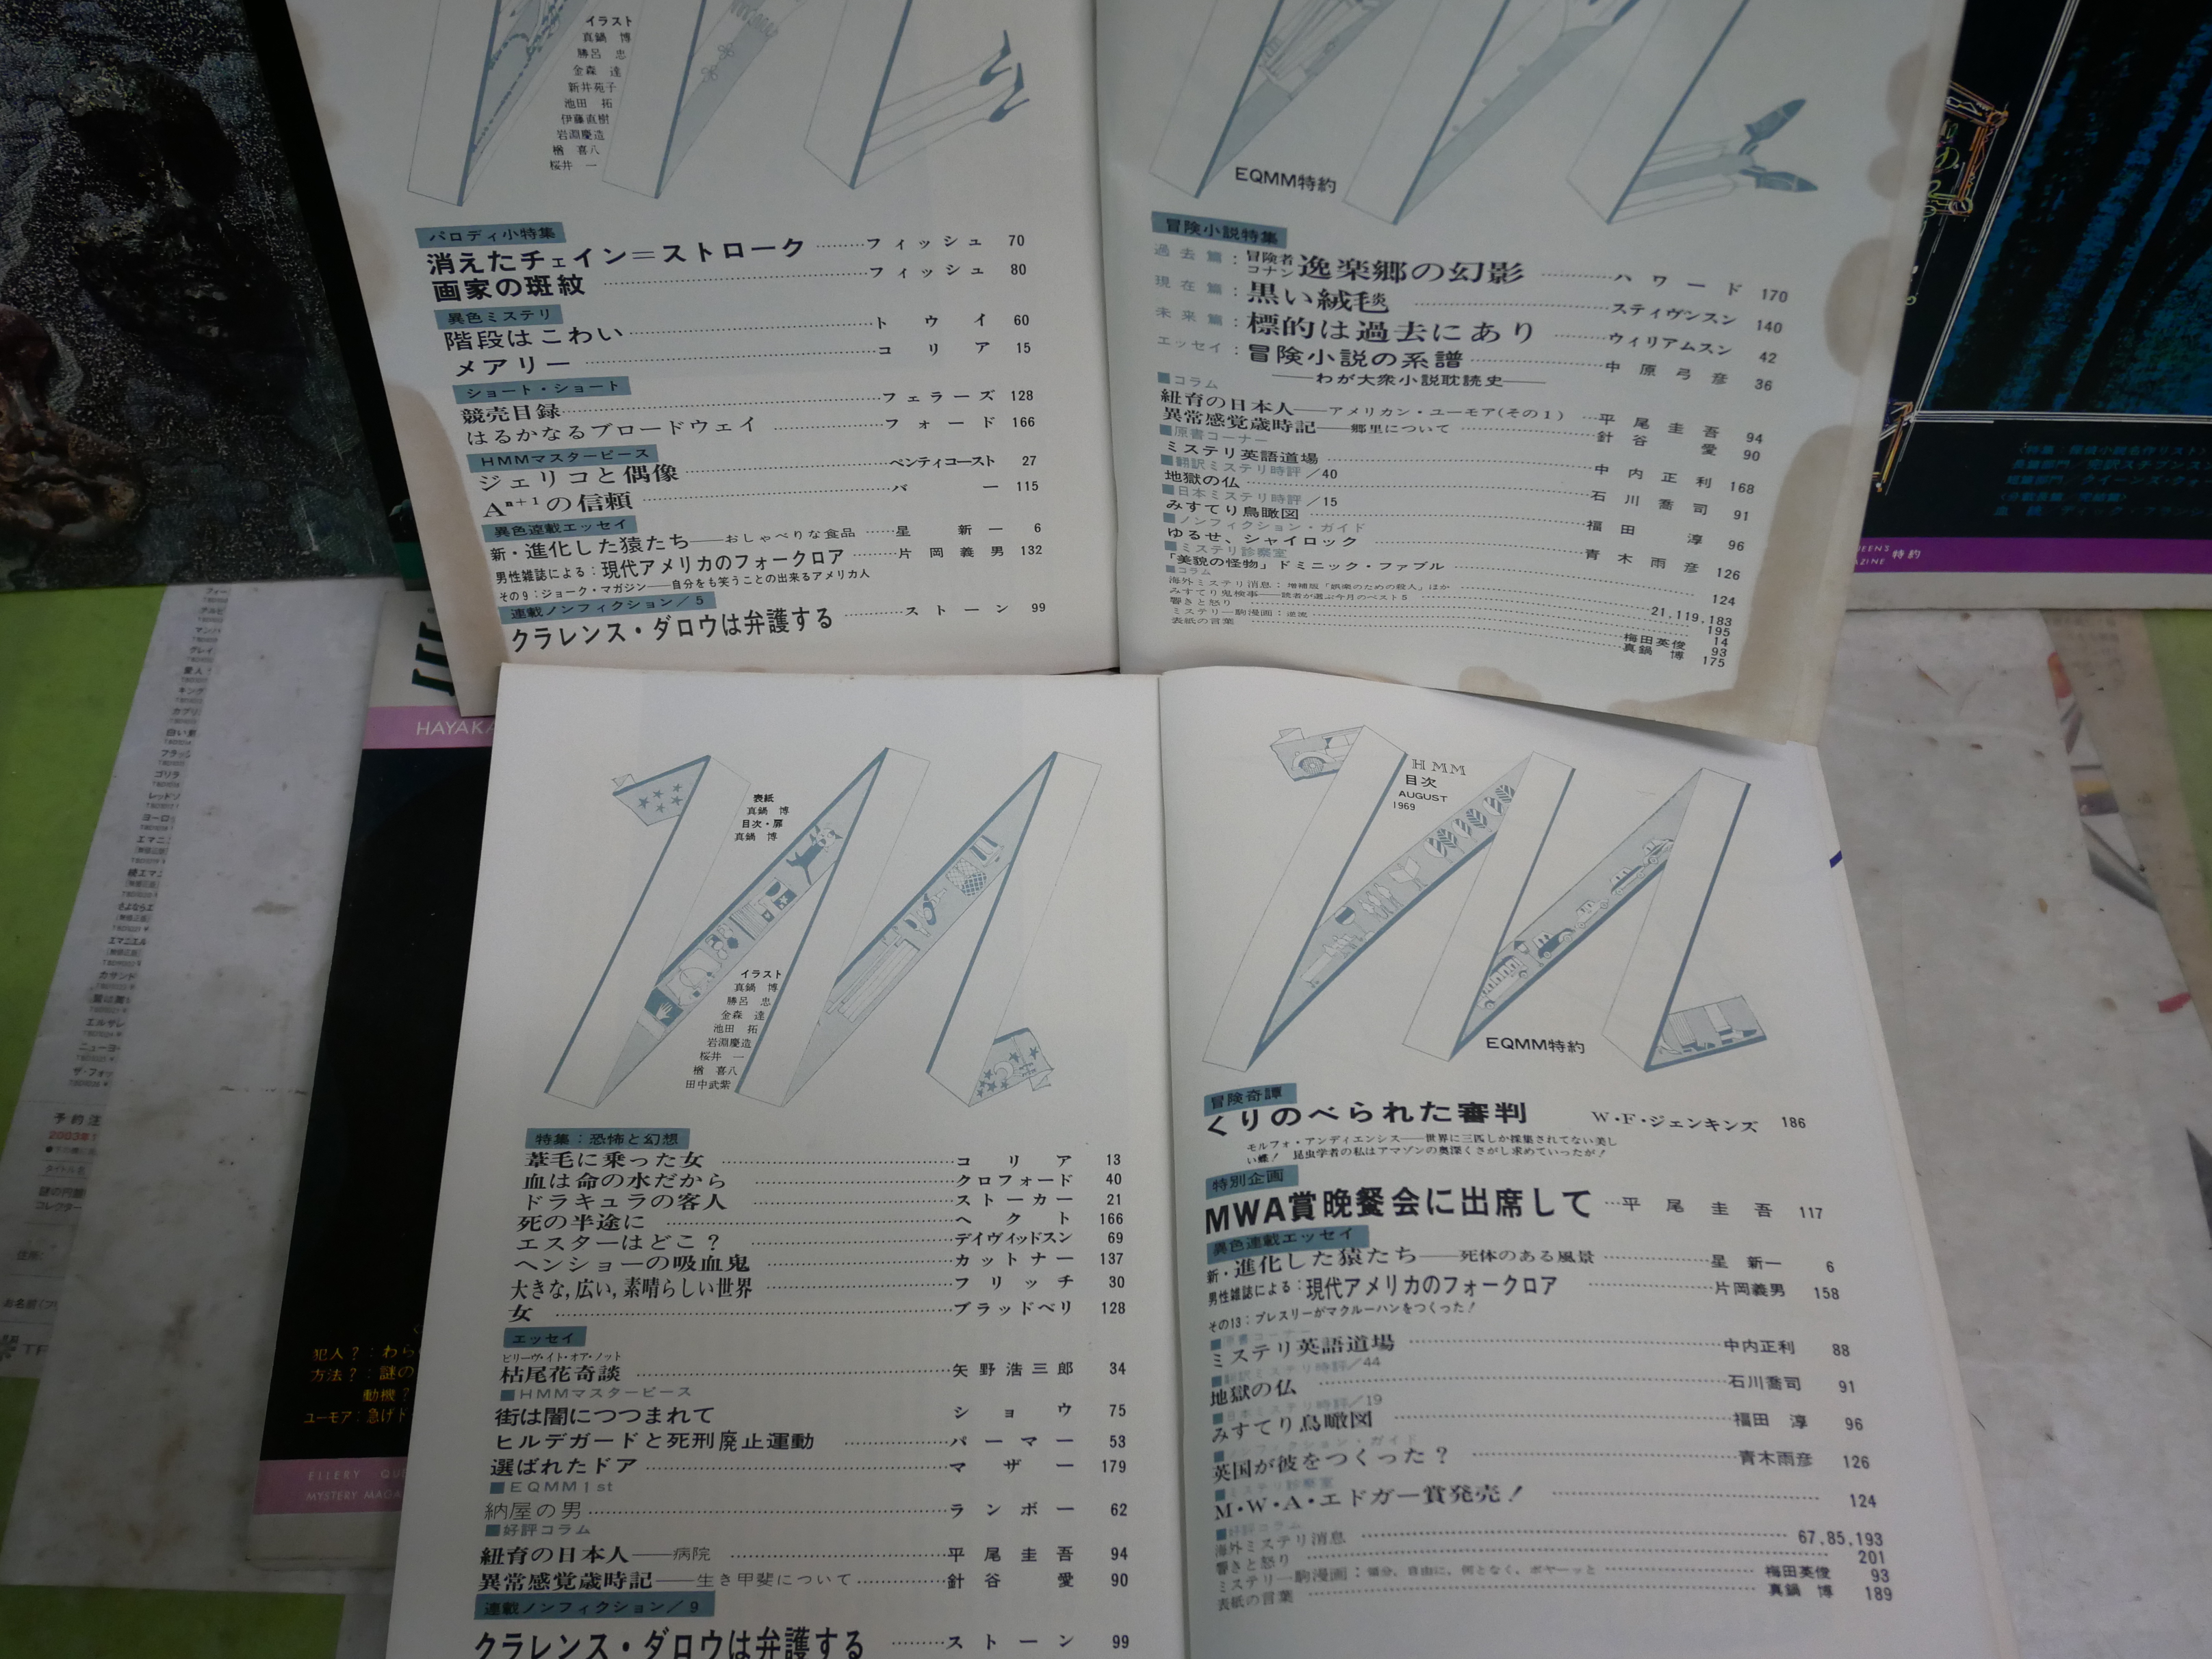 イラスト
真鍋　博
勝呂　忠
金森　達
新井苑子
池田　拓
伊藤直樹
岩淵慶造
楢　喜八
桜井　一
パロディ小特集
消えたチェイン＝ストローク………フィッシュ 70
画家の斑紋………フィッシュ 80
異色ミステリ
階段はこわい………トウイ 60
メアリー………コリア 15
ショート・ショート
競売目録………フェラーズ 128
はるかなるブロードウェイ………フォード 166
HMMマスターピース
ジェリコと偶像………ペンティコースト 27
Aⁿ⁺¹の信頼………バー 115
異色連載エッセイ
新・進化した猿たち――おしゃべりな食品……星新一 6
男性雑誌による：現代アメリカのフォークロア………片岡義男 132
その9：ジョーク・マガジン――自分をも笑うことの出来るアメリカ人
連載ノンフィクション／5
クラレンス・ダロウは弁護する………ストーン 99
EQMM特約
冒険小説特集
過去篇：冒険者コナン逸楽郷の幻影………ハワード 170
現在篇：黒い絨毛炎………スティヴンスン 140
未来篇：標的は過去にあり………ウィリアムスン 42
エッセイ：冒険小説の系譜………中原弓彦 36
――わが大衆小説耽読史――
■コラム
紐育の日本人――アメリカン・ユーモア(その1)…平尾圭吾 94
異常感覚歳時記――郷里について………針谷愛 90
■原書コーナー
ミステリ英語道場………中内正利 168
■翻訳ミステリ時評／40
地獄の仏………石川喬司 91
■日本ミステリ時評／15
みすてり鳥瞰図………福田淳 96
■ノンフィクション・ガイド
ゆるせ、シャイロック………青木雨彦 126
■ミステリ診察室
「美貌の怪物」ドミニック・ファブル………124
■コラム
海外ミステリ消息：増補版「娯楽のための殺人」ほか………21,119,183
みすてり鬼検事――読者が選ぶ今月のベスト5………195
響きと怒り………14
ミステリ一駒漫画：逆流………梅田英俊 93
表紙の言葉………真鍋　博 175
HAYAKA
表紙
真鍋　博
目次・扉
真鍋　博
イラスト
真鍋　博
勝呂　忠
金森　達
池田　拓
岩淵慶造
桜井　一
楢　喜八
田中武紫
特集：恐怖と幻想
葦毛に乗った女………コリア 13
血は命の水だから………クロフォード 40
ドラキュラの客人………ストーカー 21
死の半途に………ヘクト 166
エスターはどこ？………デイヴィッドスン 69
ヘンショーの吸血鬼………カットナー 137
大きな,広い,素晴らしい世界………フリッチ 30
女………ブラッドベリ 128
エッセイ
ビリーヴ・イト・オア・ノット
枯尾花奇談………矢野浩三郎 34
■HMMマスターピース
街は闇につつまれて　ショウ 75
ヒルデガードと死刑廃止運動………パーマー 53
選ばれたドア………マザー 179
■EQMM1st
納屋の男………ランボー 62
■好評コラム
紐育の日本人――病院………平尾圭吾 94
異常感覚歳時記――生き甲斐について………針谷愛 90
連載ノンフィクション／9
クラレンス・ダロウは弁護する………ストーン 99
HMM
目次
AUGUST
1969
EQMM特約
冒険奇譚
くりのべられた審判　W・F・ジェンキンズ 186
モルフォ・アンディエンシス――世界に三匹しか採集されてない美し
い蝶！　昆虫学者の私はアマゾンの奥深くさがし求めていったが！
特別企画
MWA賞晩餐会に出席して…平尾圭吾 117
異色連載エッセイ
新・進化した猿たち――死体のある風景………星新一 6
男性雑誌による：現代アメリカのフォークロア………片岡義男 158
その13：プレスリーがマクルーハンをつくった！
■原書コーナー
ミステリ英語道場………中内正利 88
■翻訳ミステリ時評／44
地獄の仏………石川喬司 91
■日本ミステリ時評／19
みすてり鳥瞰図………福田　淳 96
■ノンフィクション・ガイド
英国が彼をつくった？………青木雨彦 126
■ミステリ診察室
M・W・A・エドガー賞発売！………124
■好評コラム
海外ミステリ消息………67,85,193
響きと怒り………201
ミステリ一駒漫画：領分，自由に，何となく，ボヤーッと………梅田英俊 93
表紙の言葉………真鍋　博 189
犯人？：わら
方法？：謎の
動機？
ユーモア：急げド
ELLERY QUE
MYSTERY MAGA
〈特集：探偵小説名作リスト〉
特約
予約注
2003年1